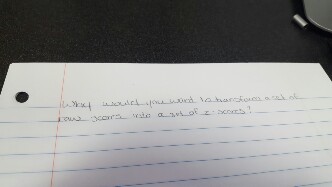 Why would you want to transform a set of
raw scores into a set of z-scores?